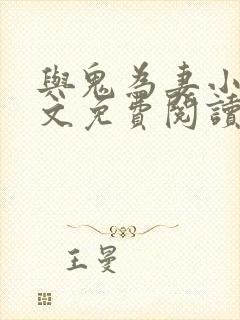 與鬼為妻小
文免費閱讀
王曼